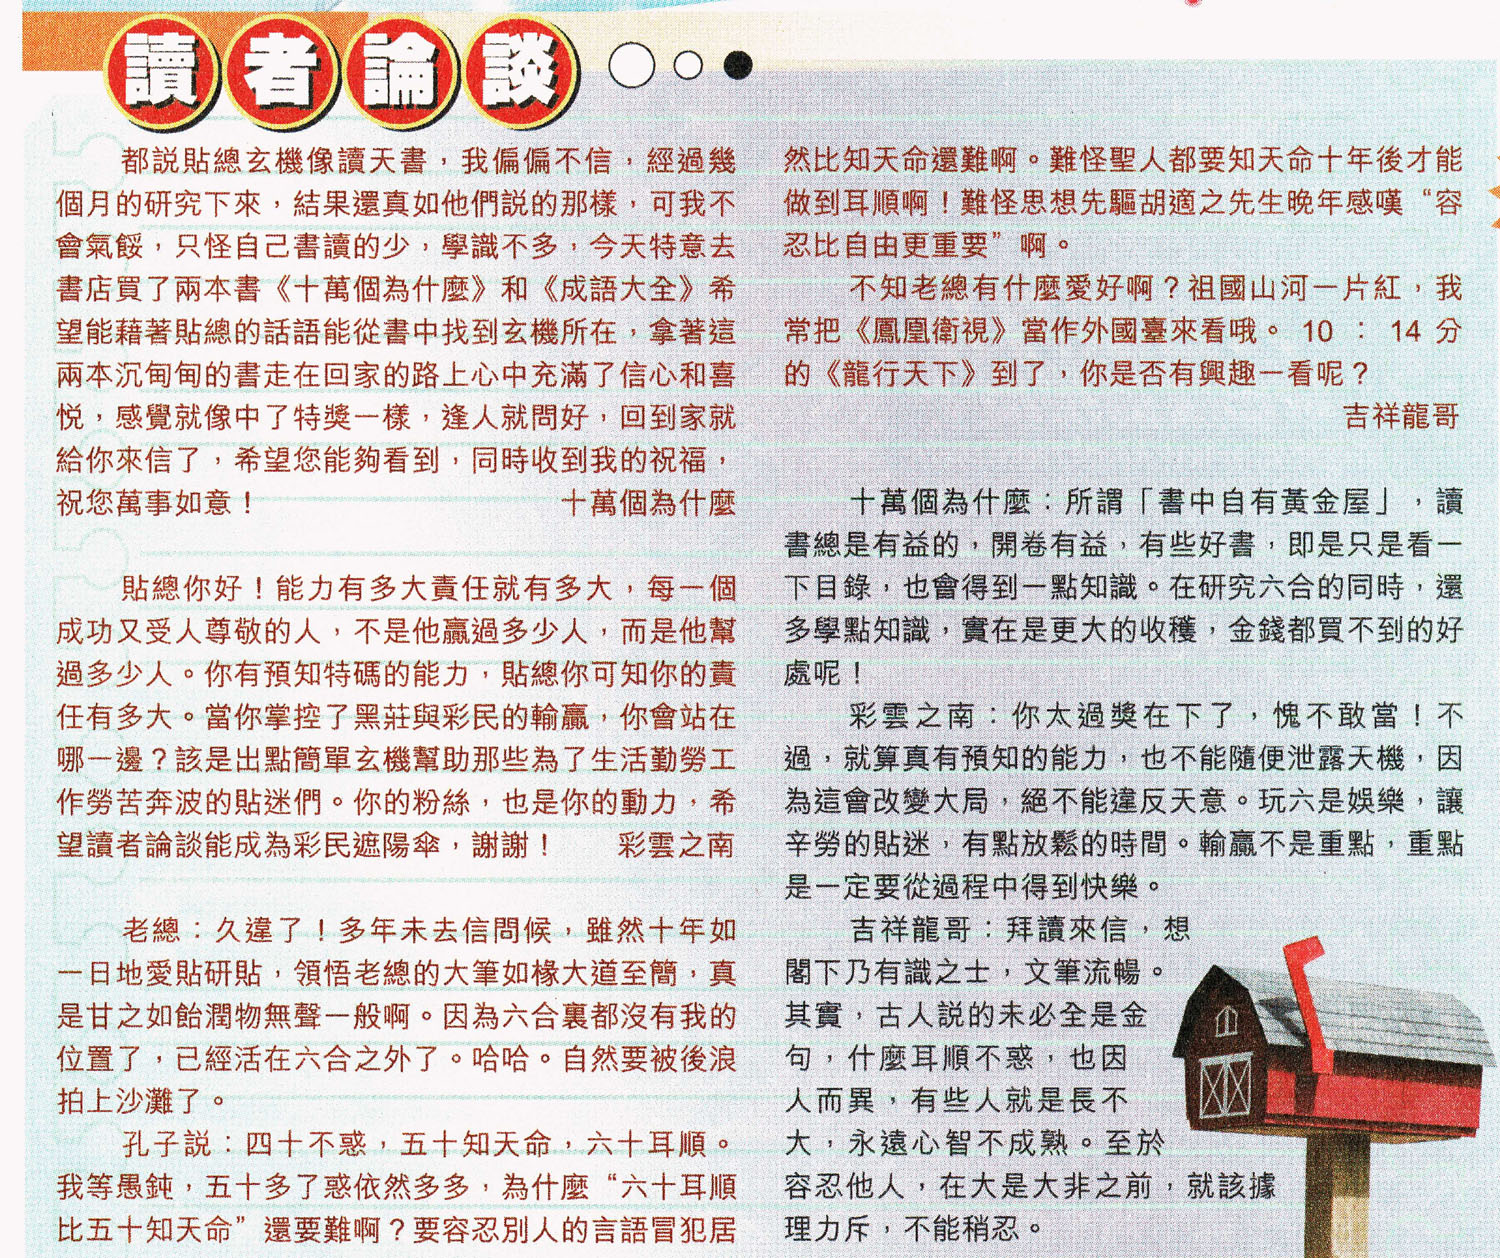 讀者論談
都説貼總玄機像讀天書，我偏偏不信，經過幾
個月的研究下來，結果還真如他們説的那樣，可我不
會氣餒，只怪自己書讀的少，學識不多，今天特意去
書店買了兩本書《十萬個為什麼》和《成語大全》希
望能藉著貼總的話語能從書中找到玄機所在，拿著這
兩本沉甸甸的書走在回家的路上心中充滿了信心和喜
悦，感覺就像中了特獎一樣，逢人就問好，回到家就
給你來信了，希望您能夠看到，同時收到我的祝福，
祝您萬事如意！ 十萬個為什麼
貼總你好！能力有多大責任就有多大，每一個
成功又受人尊敬的人，不是他贏過多少人，而是他幫
過多少人。你有預知特碼的能力，貼總你可知你的責
任有多大。當你掌控了黑莊與彩民的輸贏，你會站在
哪一邊？該是出點簡單玄機幫助那些為了生活勤勞工
作勞苦奔波的貼迷們。你的粉絲，也是你的動力，希
望讀者論談能成為彩民遮陽傘，謝謝！ 彩雲之南
老總：久違了！多年未去信問候，雖然十年如
一日地愛貼研貼，領悟老總的大筆如椽大道至簡，真
是甘之如飴潤物無聲一般啊。因為六合裏都沒有我的
位置了，已經活在六合之外了。哈哈。自然要被後浪
拍上沙灘了。
孔子説：四十不惑，五十知天命，六十耳順。
我等愚鈍，五十多了惑依然多多，為什麼“六十耳順
比五十知天命”還要難啊？要容忍別人的言語冒犯居
然比知天命還難啊。難怪聖人都要知天命十年後才能
做到耳順啊！難怪思想先驅胡適之先生晚年感嘆“容
忍比自由更重要”啊。
不知老總有什麼愛好啊？祖國山河一片紅，我
常把《鳳凰衛視》當作外國臺來看哦。10：14分
的《龍行天下》到了，你是否有興趣一看呢？
吉祥龍哥
十萬個為什麼：所謂「書中自有黃金屋」，讀
書總是有益的，開卷有益，有些好書，即是只是看一
下目錄，也會得到一點知識。在研究六合的同時，還
多學點知識，實在是更大的收穫，金錢都買不到的好
處呢！
彩雲之南：你太過獎在下了，愧不敢當！不
過，就算真有預知的能力，也不能隨便泄露天機，因
為這會改變大局，絕不能違反天意。玩六是娛樂，讓
辛勞的貼迷，有點放鬆的時間。輸贏不是重點，重點
是一定要從過程中得到快樂。
吉祥龍哥：拜讀來信，想
閣下乃有識之士，文筆流暢。
其實，古人説的未必全是金
句，什麼耳順不惑，也因
人而異，有些人就是長不
大，永遠心智不成熟。至於
容忍他人，在大是大非之前，就該據
理力斥，不能稍忍。